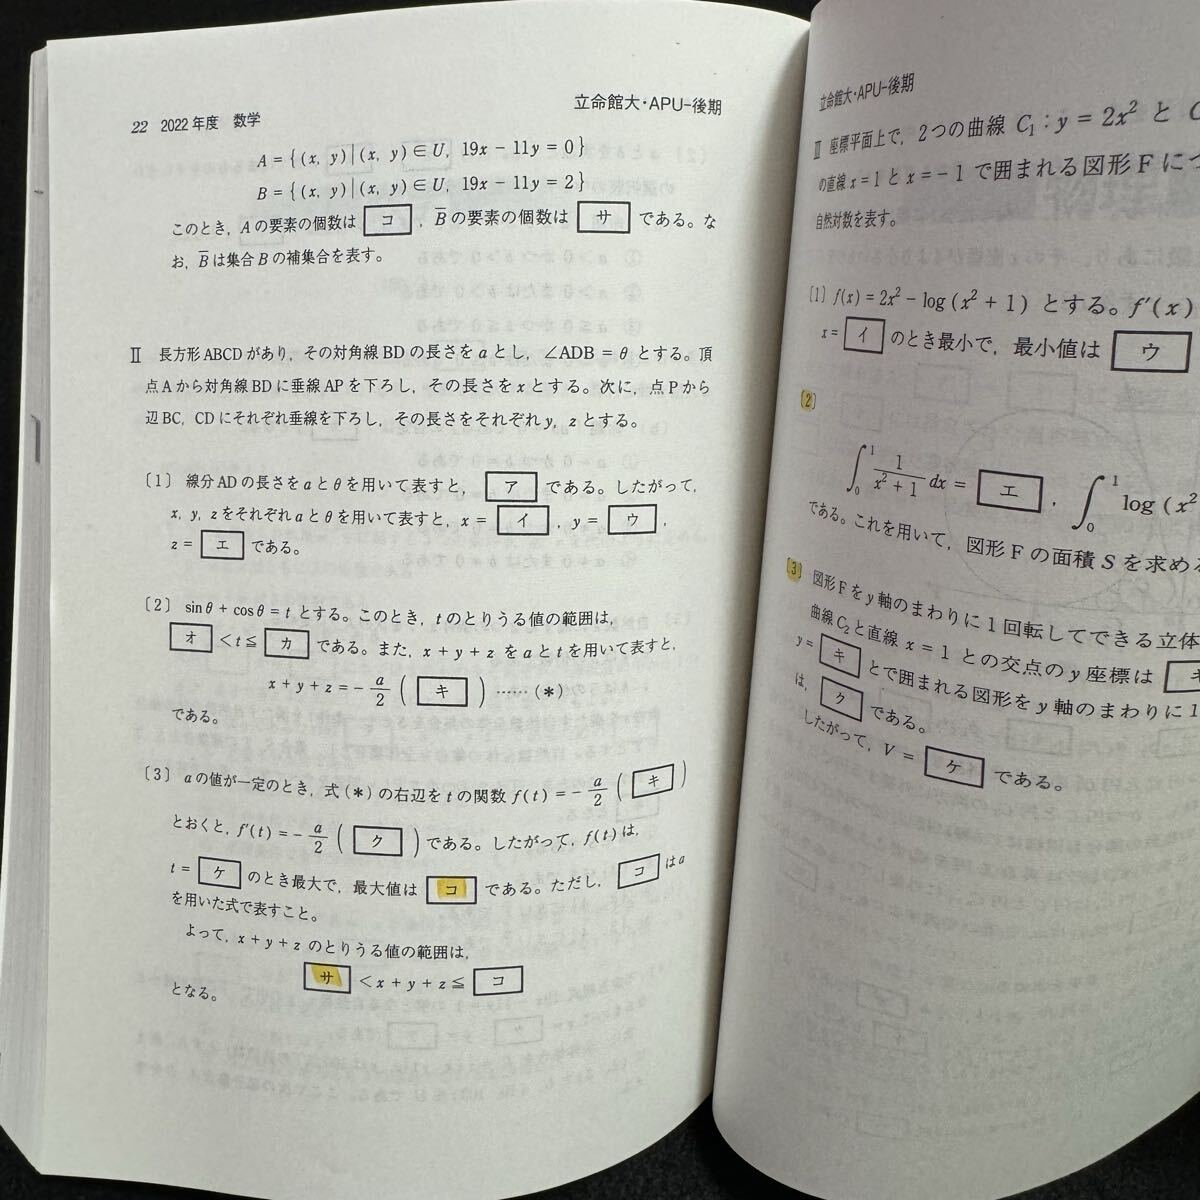 22 2022年度 数学
立命館大・APU-後期
A = {(x, y)|(x, y)∈U, 19x − 11y = 0}
B = {(x, y)|(x, y)∈U, 19x − 11y = 2}
このとき, Aの要素の個数は コ , B̅の要素の個数は サ である。な
お, B̅は集合Bの補集合を表す。
Ⅱ 長方形ABCDがあり, その対角線BDの長さをaとし, ∠ADB = θ とする。頂
点Aから対角線BDに垂線APを下ろし, その長さをxとする。次に, 点Pから
辺BC, CDにそれぞれ垂線を下ろし, その長さをそれぞれy, zとする。
〔1〕 線分ADの長さをaとθを用いて表すと, ア である。したがって,
x, y, zをそれぞれaとθを用いて表すと, x = イ , y = ウ ,
z = エ である。
〔2〕 sinθ + cosθ = t とする。このとき, tのとりうる値の範囲は,
オ < t ≦ カ である。また, x + y + z をaとtを用いて表すと,
x + y + z = − a/2 ( キ ) …… (*)
である。
〔3〕 aの値が一定のとき, 式(*)の右辺をtの関数 f(t) = − a/2 ( キ )
とおくと, f′(t) = − a/2 ( ク ) である。したがって, f(t)は,
t = ケ のとき最大で, 最大値は コ である。ただし, コ はa
を用いた式で表すこと。
よって, x + y + z のとりうる値の範囲は,
サ < x + y + z ≦ コ
となる。
立命館大・APU-後期
Ⅲ 座標平面上で, 2つの曲線 C₁ : y = 2x² と C
の直線 x = 1 と x = −1 で囲まれる図形Fにつ
自然対数を表す。
〔1〕 f(x) = 2x² − log(x² + 1) とする。f′(x)
x = イ のとき最小で, 最小値は ウ
〔2〕
∫₀¹ 1/(x² + 1) dx = エ , ∫₀¹ log(x²
である。これを用いて, 図形Fの面積Sを求める
〔3〕 図形Fをy軸のまわりに1回転してできる立体
曲線C₂と直線 x = 1 との交点のy座標は キ
y = キ とで囲まれる図形をy軸のまわりに1
は, ク である。
したがって, V = ケ である。